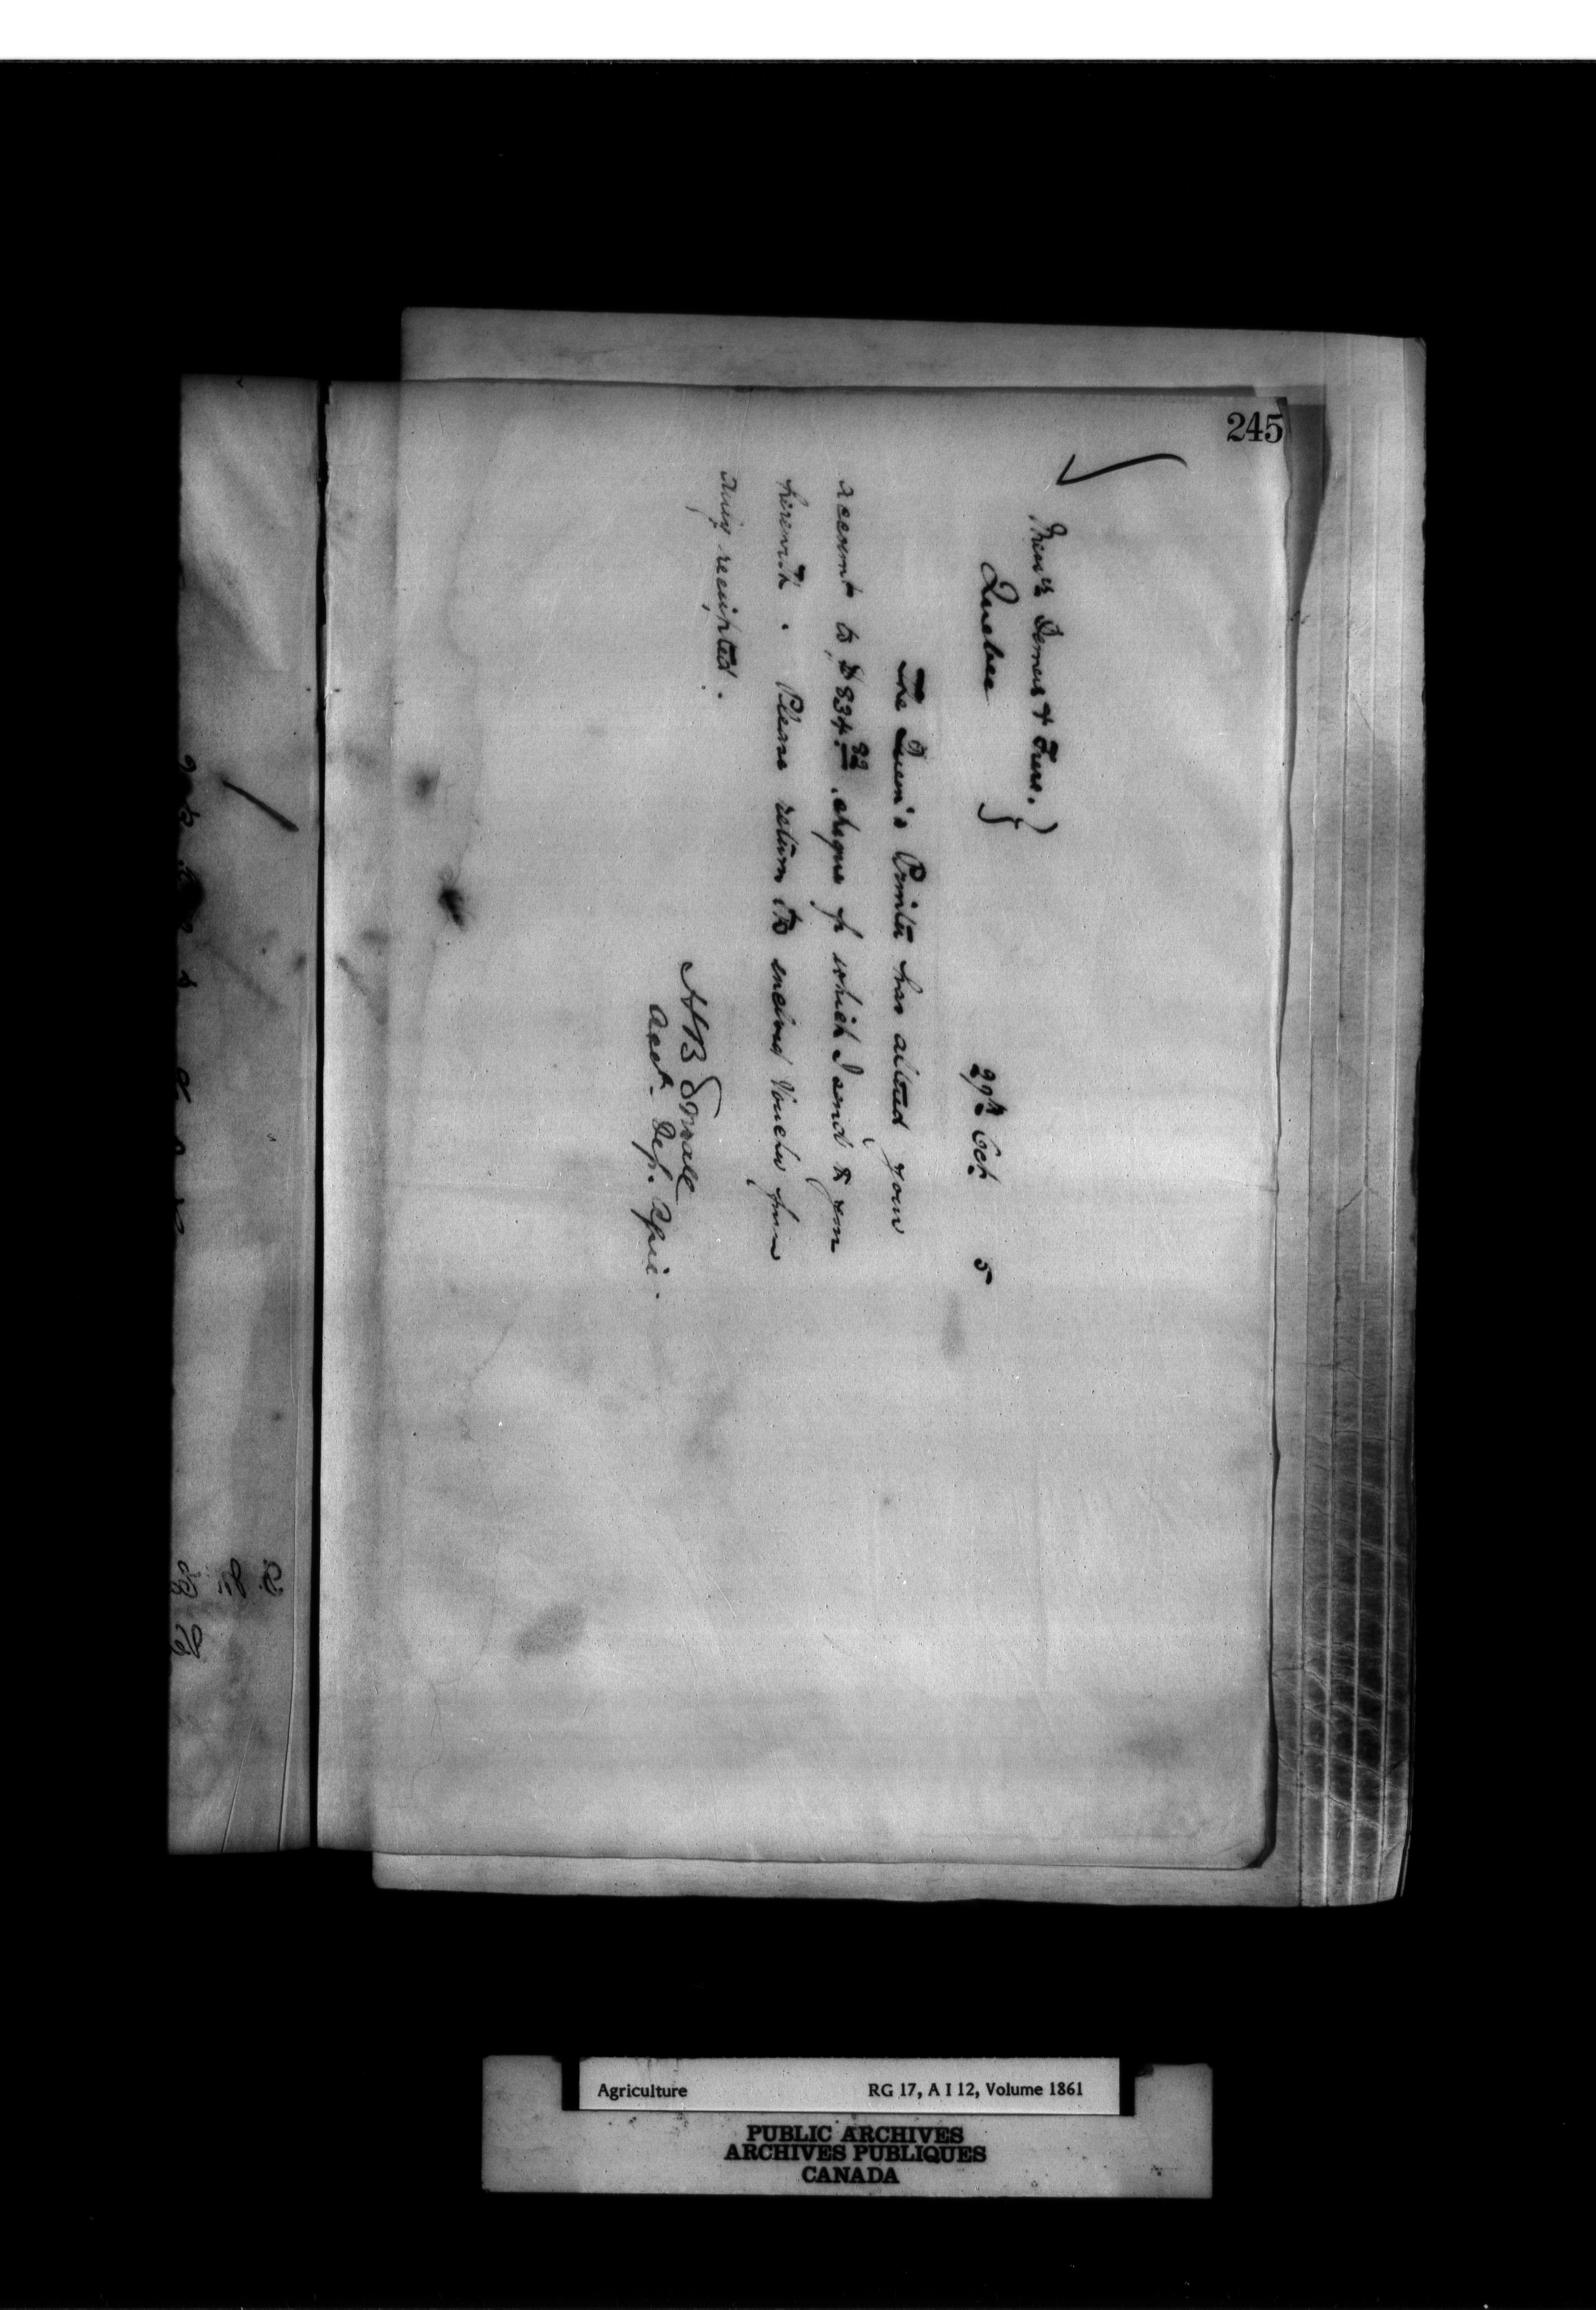 245
Mess rs Demers & Frere.
Quebec
29th Oct. 5
The Queen's Printer has audited your
account to $834.22, cheque for which I send to you
herewith. Please return the enclosed Voucher
duly receipted.
HB Small
Acct. Dep. Agric.
Agriculture RG 17, A I 12, Volume 1861
PUBLIC ARCHIVES
ARCHIVES PUBLIQUES
CANADA